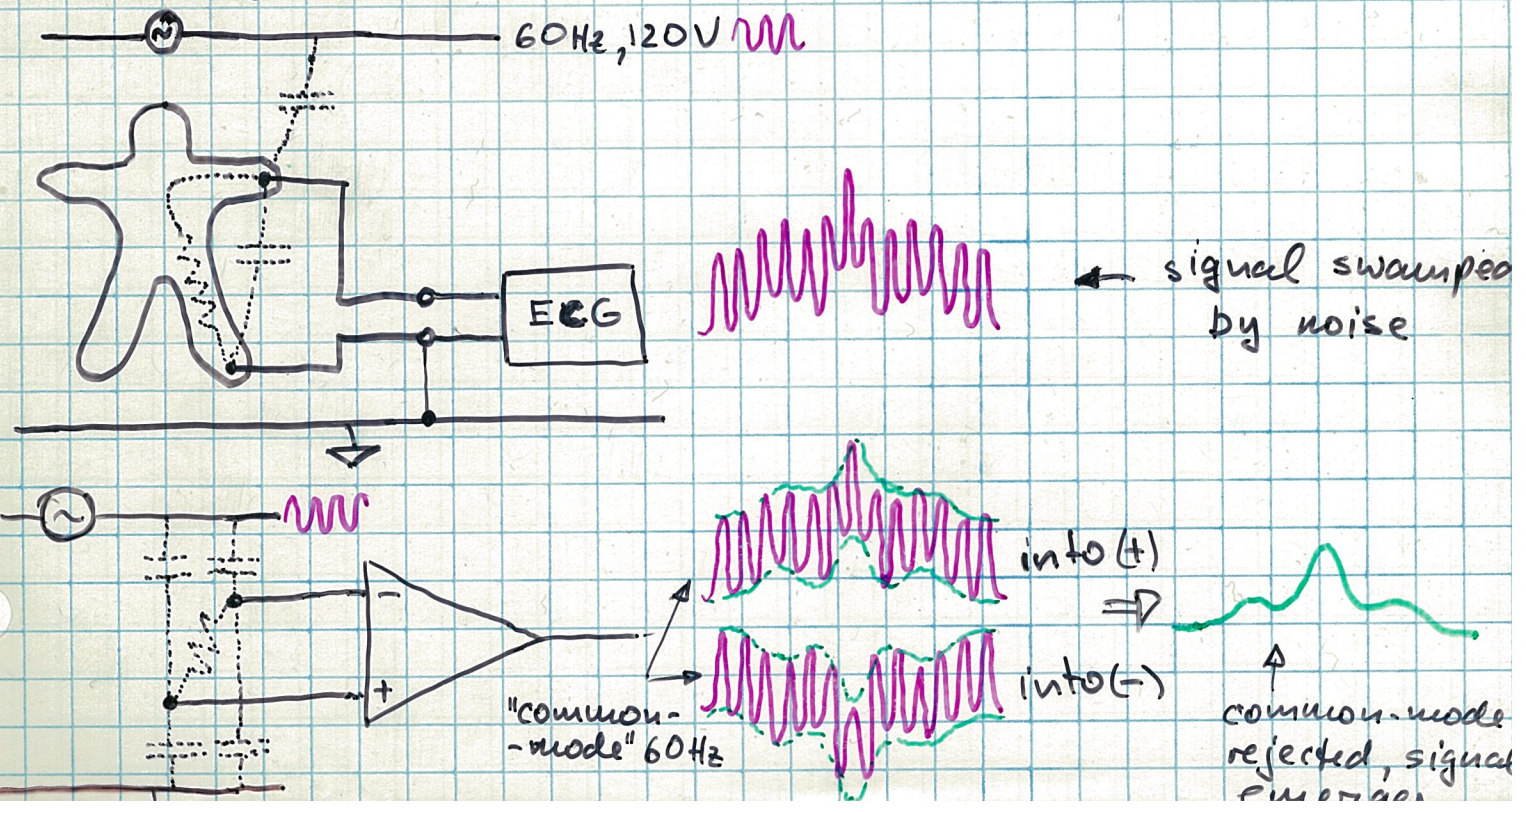 60Hz, 120V
ECG
signal swamped
by noise
into (+)
−
+
"common-
-mode" 60Hz
into (-)
common-mode
rejected, signal
emerges